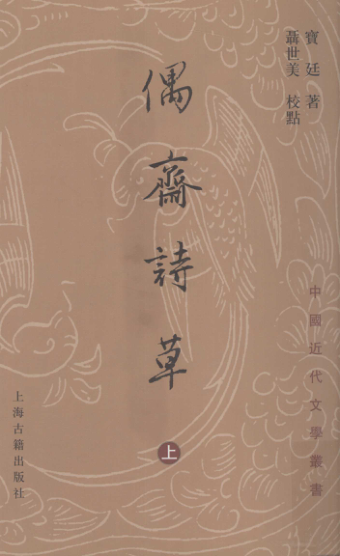 寶廷 著
聶世美 校點
偶齋詩草
上
中國近代文學叢書
上海古籍出版社